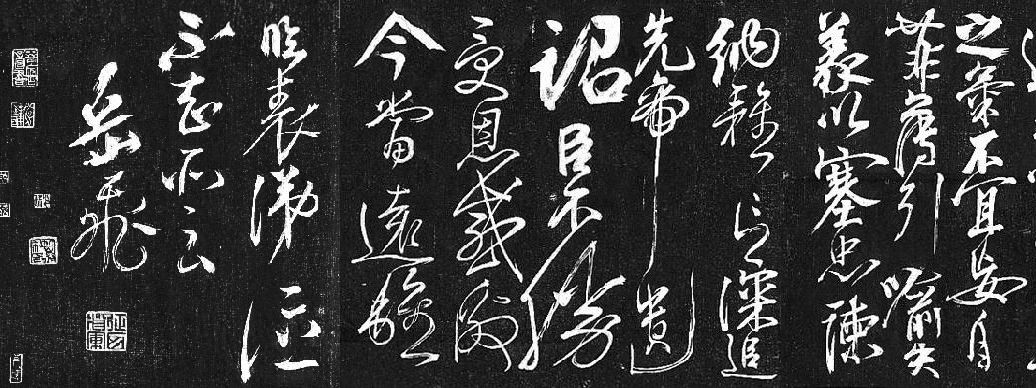 之氣不宜妄自
菲薄引喻失
義以塞忠諫
納雅言深追
先帝遺
詔臣不勝
受恩感激
今當遠離
臨表涕泣
不知所云
岳飛